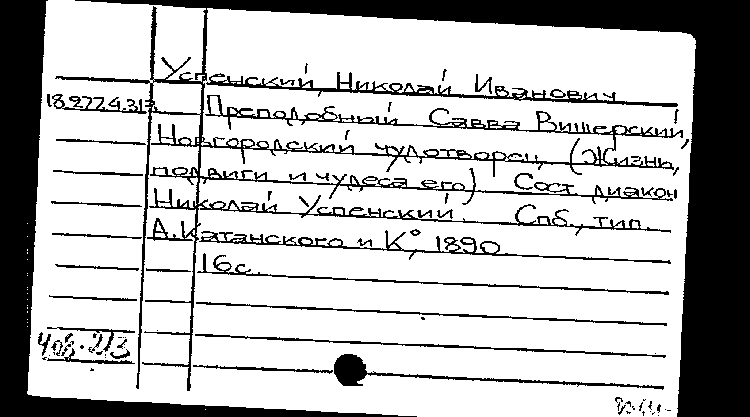 Успенский, Николай Иванович
18.277.4.313 Преподобный Савва Вишерский,
Новгородский чудотворец (Жизнь,
подвиги и чудеса его). Сост. диакон
Николай Успенский. Спб., тип.
А. Катанского и К°, 1890.
16с.